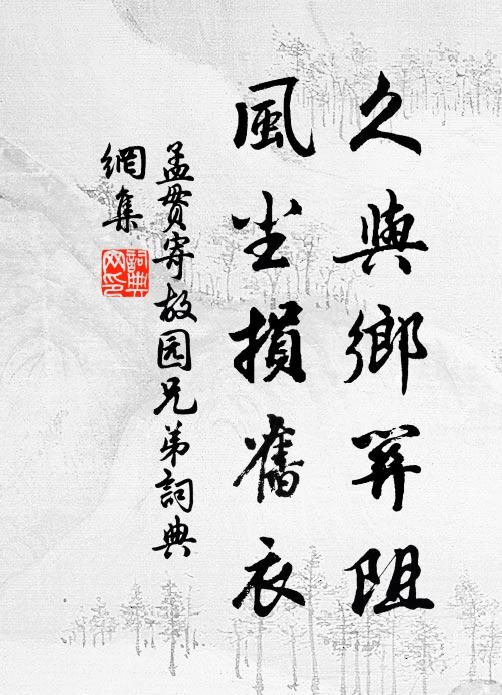 久與鄉關阻
風尘損舊衣
孟贯寄故园兄弟詞典
網集
詞典
网印